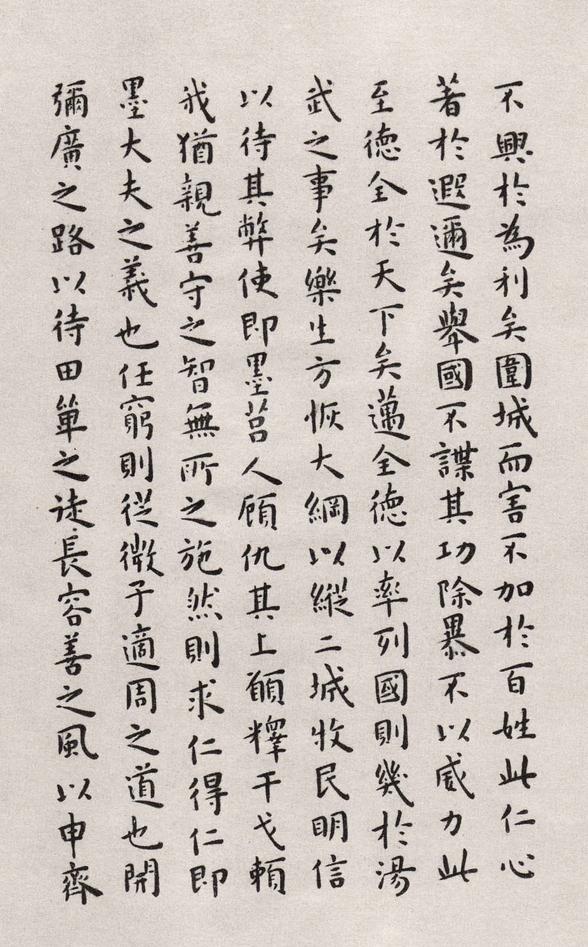 不興於為利矣圍城而害不加於百姓此仁心
著於遐邇矣舉國不謀其功除暴不以威力此
至德全於天下矣邁全德以率列國則幾於湯
武之事矣樂生方恢大綱以縱二城收民明信
以待其弊使即墨莒人顧仇其上願釋干戈賴
我猶親善守之智無所之施然則求仁得仁即
墨大夫之義也任窮則從微子適周之道也開
彌廣之路以待田單之徒長容善之風以申齊